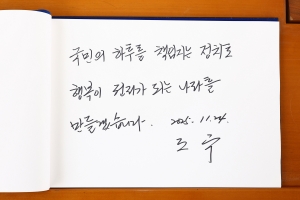 국민의 하루를 책임지는 정치로
행복이 먼저가 되는 나라를
만들겠습니다. 2025. 11. 24.